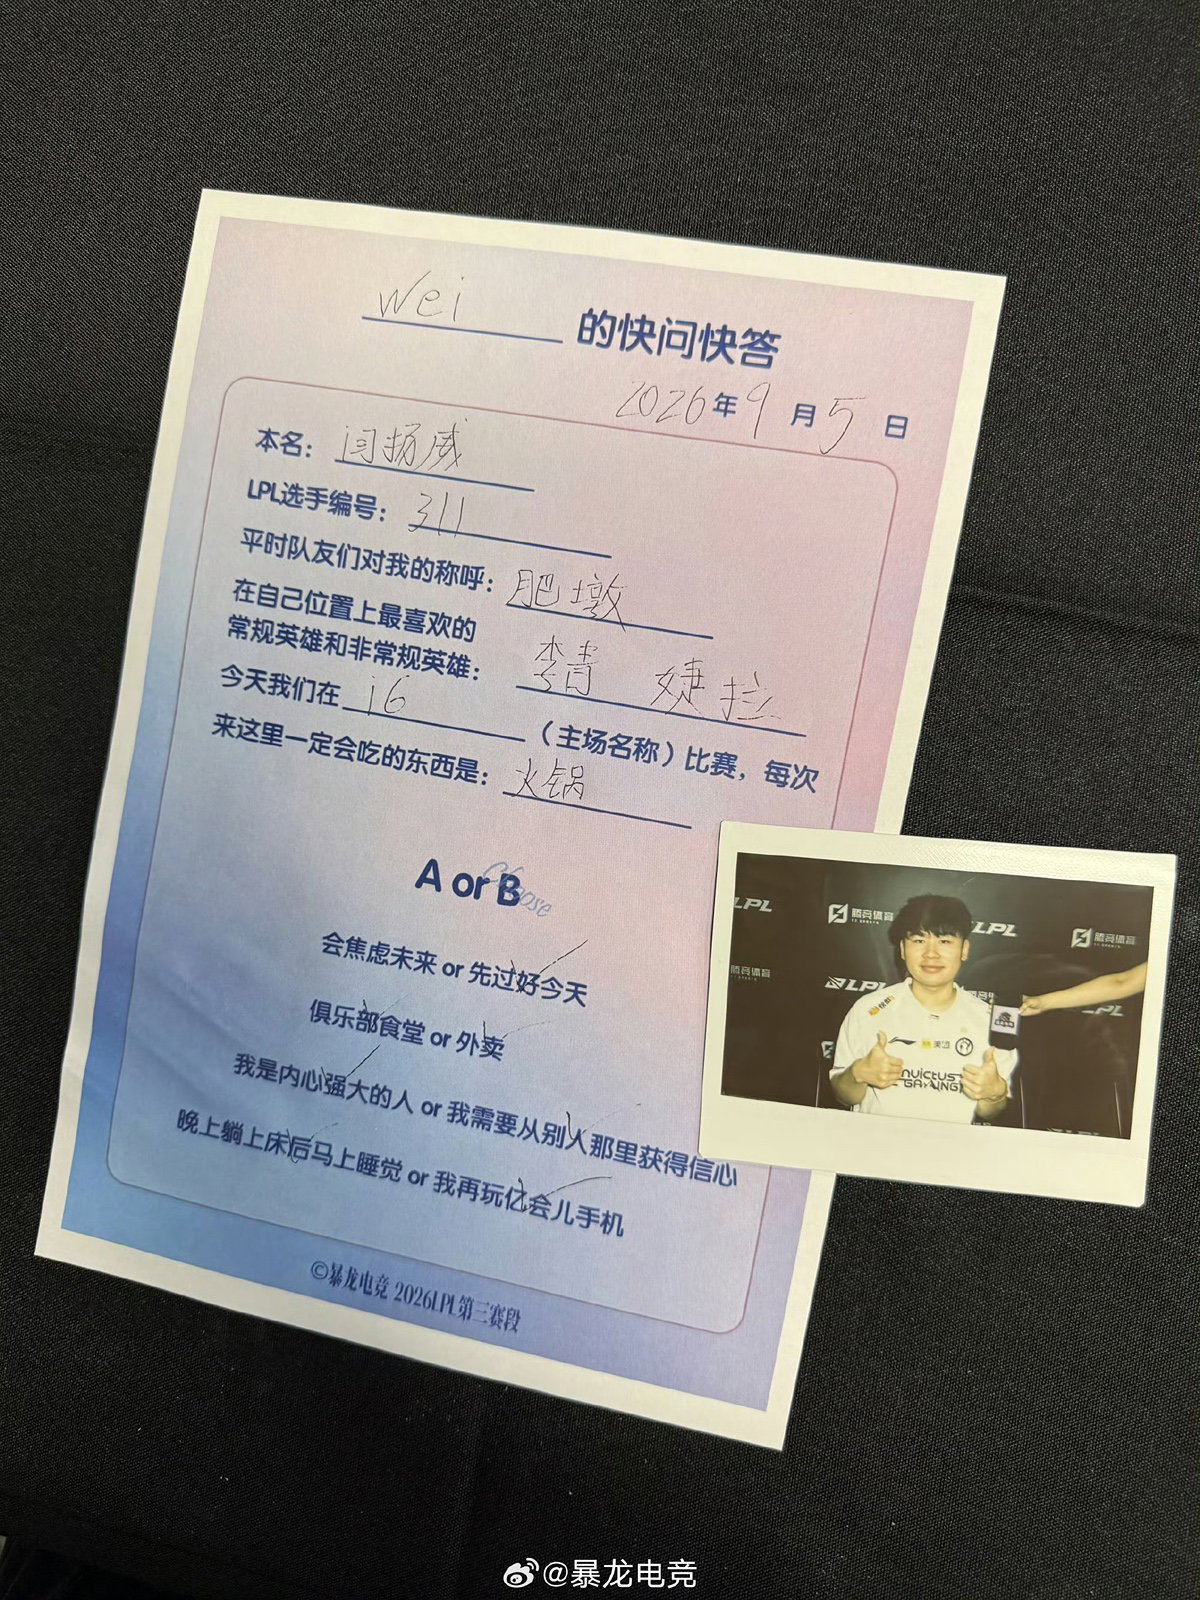 Wei 的快问快答
2026年9月5日
本名：闫扬威
LPL选手编号：311
平时队友们对我的称呼：肥墩
在自己位置上最喜欢的
常规英雄和非常规英雄：李青 婕拉
今天我们在 iG （主场名称）比赛，每次
来这里一定会吃的东西是：火锅
A or B
Choose
会焦虑未来 or 先过好今天
俱乐部食堂 or 外卖
我是内心强大的人 or 我需要从别人那里获得信心
晚上躺上床后马上睡觉 or 我再玩亿会儿手机
©暴龙电竞 2026LPL第三赛段
LPL
腾竞体育
LPL
腾竞体育
腾竞体育
LPL
LPL
美团
INVICTUS
GAMING
@暴龙电竞